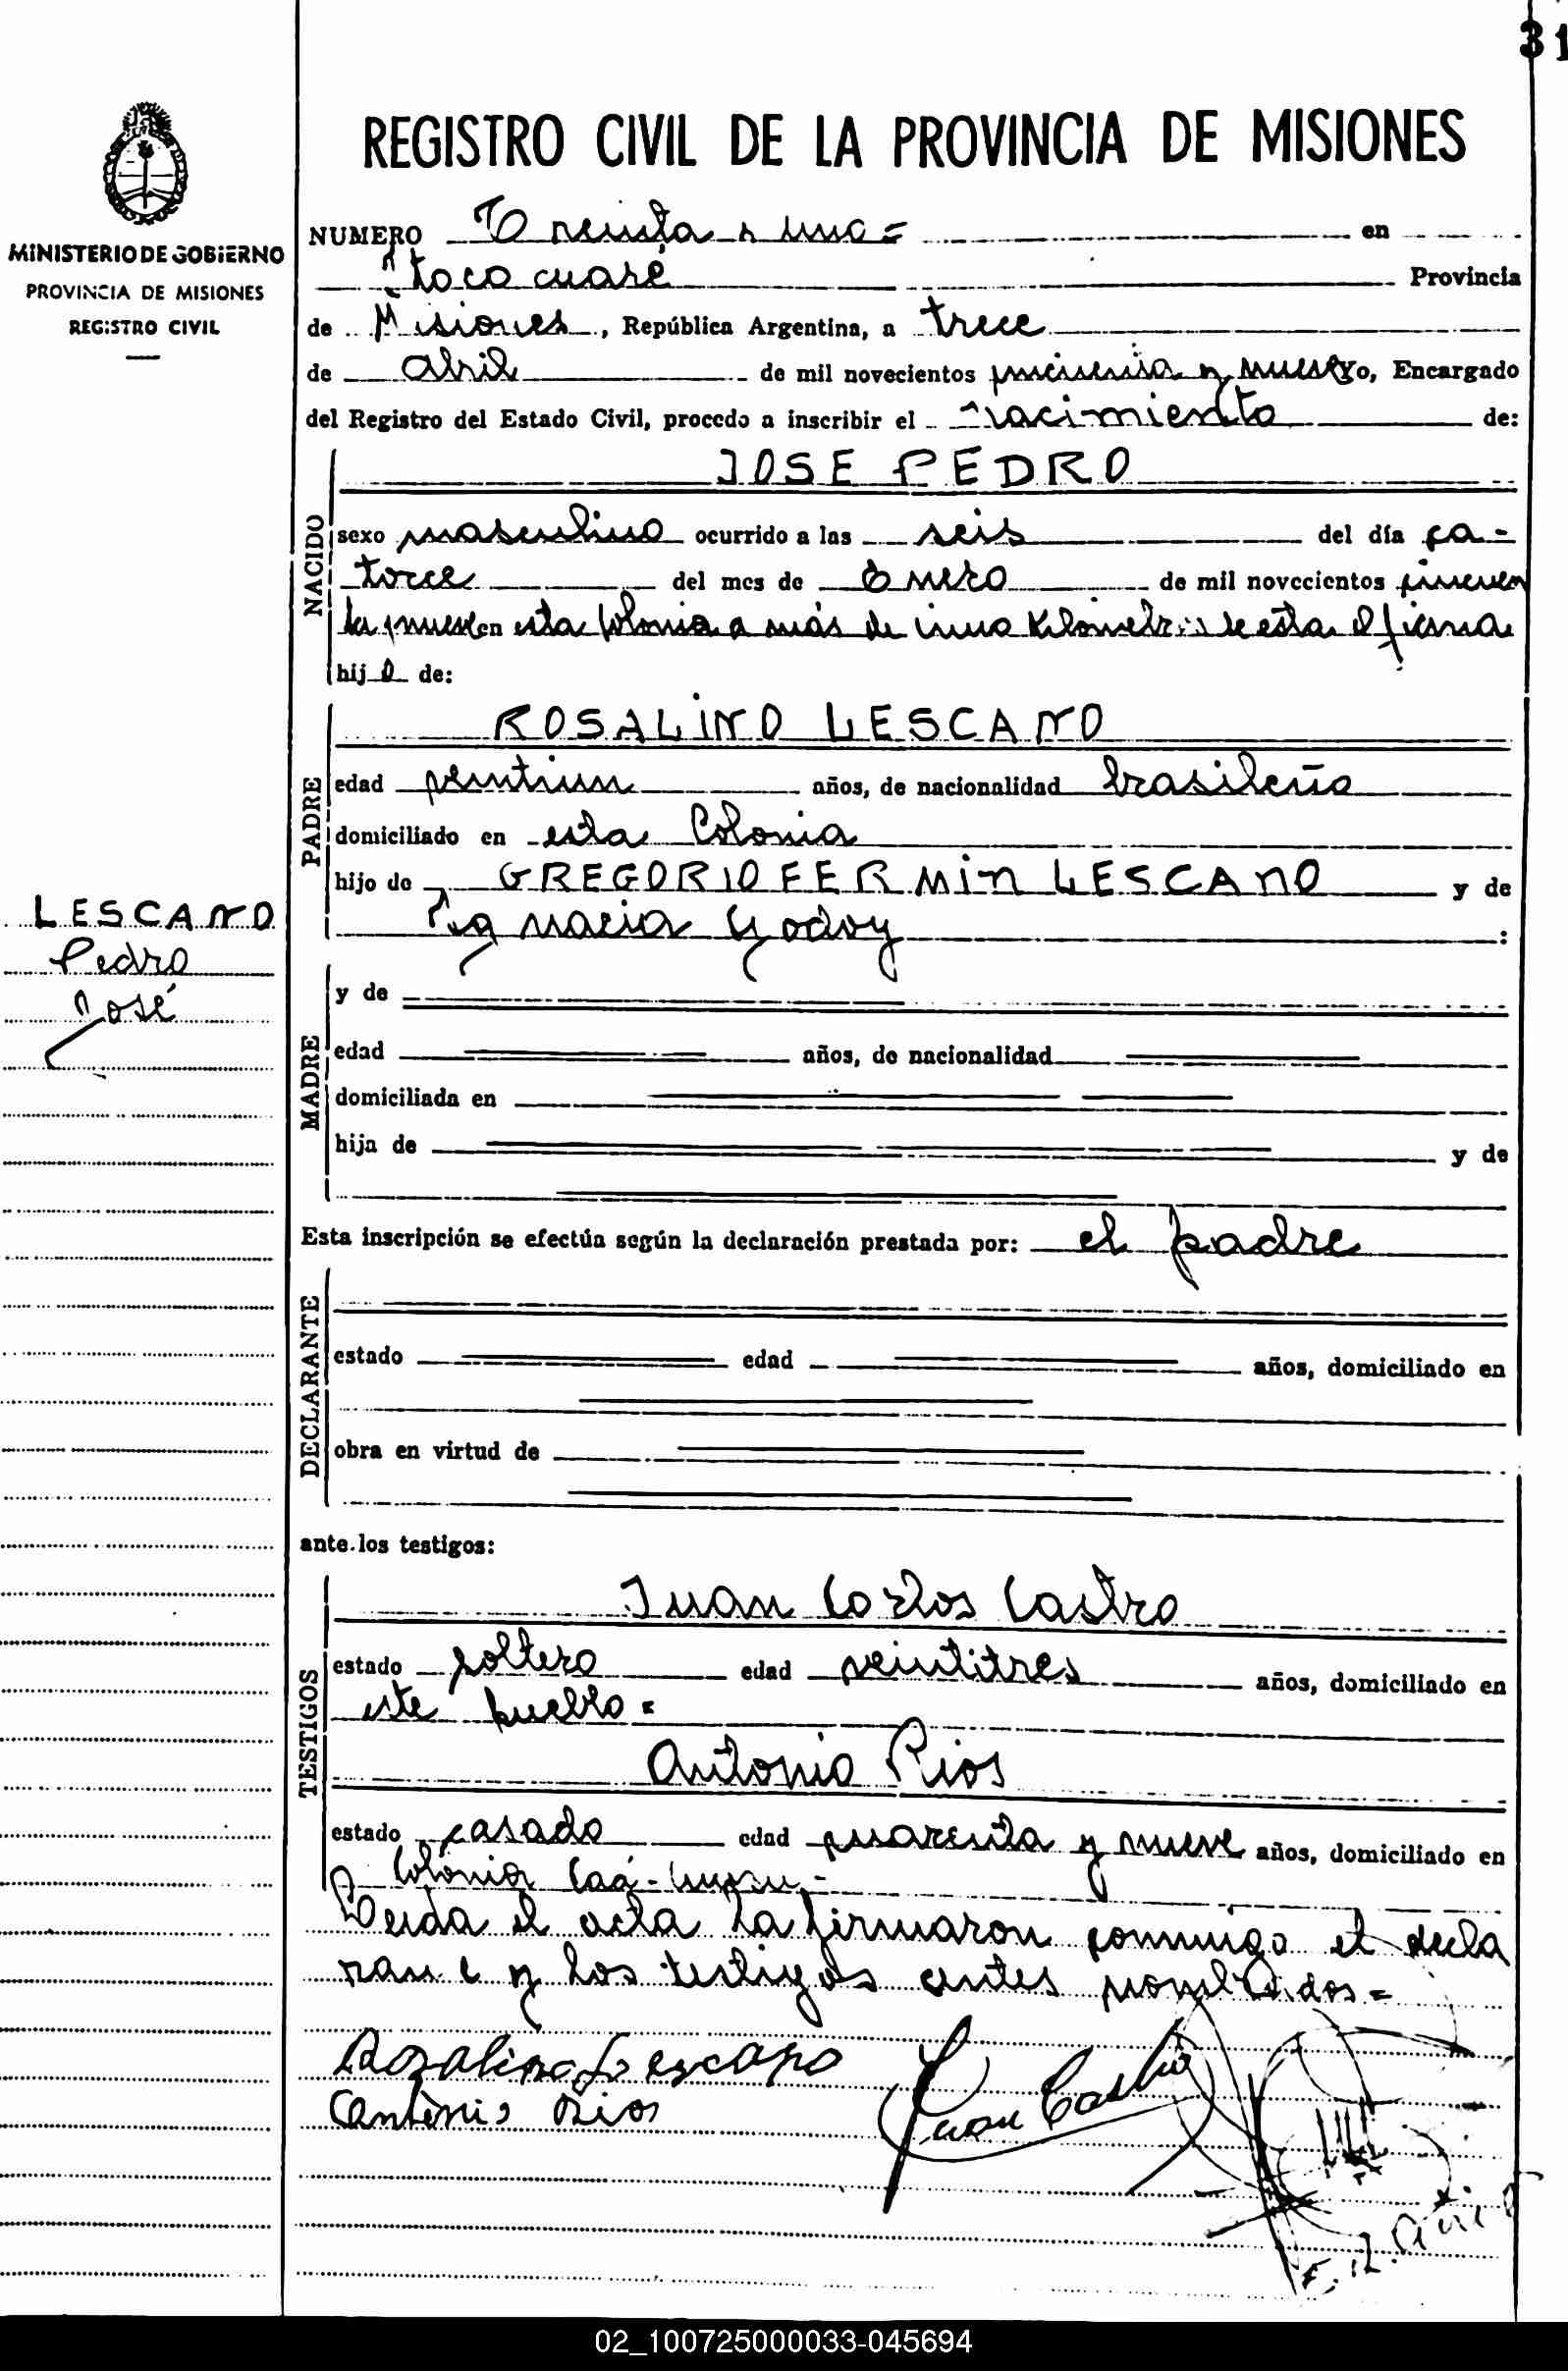 31
REGISTRO CIVIL DE LA PROVINCIA DE MISIONES
MINISTERIO DE GOBIERNO
PROVINCIA DE MISIONES
REGISTRO CIVIL
NUMERO Treinta y uno= en
Itacaruaré Provincia
de Misiones, República Argentina, a trece
de abril de mil novecientos cincuenta y nueve, Encargado
del Registro del Estado Civil, procedo a inscribir el nacimiento de:
NACIDO
JOSE PEDRO
sexo masculino ocurrido a las seis del día ca-
torce del mes de Enero de mil novecientos cincuen
ta y nueve en esta Colonia a más de cinco Kilometros de esta oficina
hijo de:
PADRE
ROSALINO LESCANO
edad veintiun años, de nacionalidad brasileña
domiciliado en esta Colonia
hijo de GREGORIO FERMIN LESCANO y de
Ignacia Godoy :
LESCANO
Pedro
José
MADRE
y de
edad años, de nacionalidad
domiciliada en
hija de y de
Esta inscripción se efectúa según la declaración prestada por: el padre
DECLARANTE
estado edad años, domiciliado en
obra en virtud de
ante los testigos:
TESTIGOS
Juan Carlos Castro
estado soltero edad veintitres años, domiciliado en
este pueblo=
Antonio Rios
estado casado edad cuarenta y nueve años, domiciliado en
Colonia Caá-
Leida el acta la firmaron conmigo el decla
rante y los testigos antes nombrados=
Rozalino Lescano
Juan Castro
Antonio Rios
02_100725000033-045694